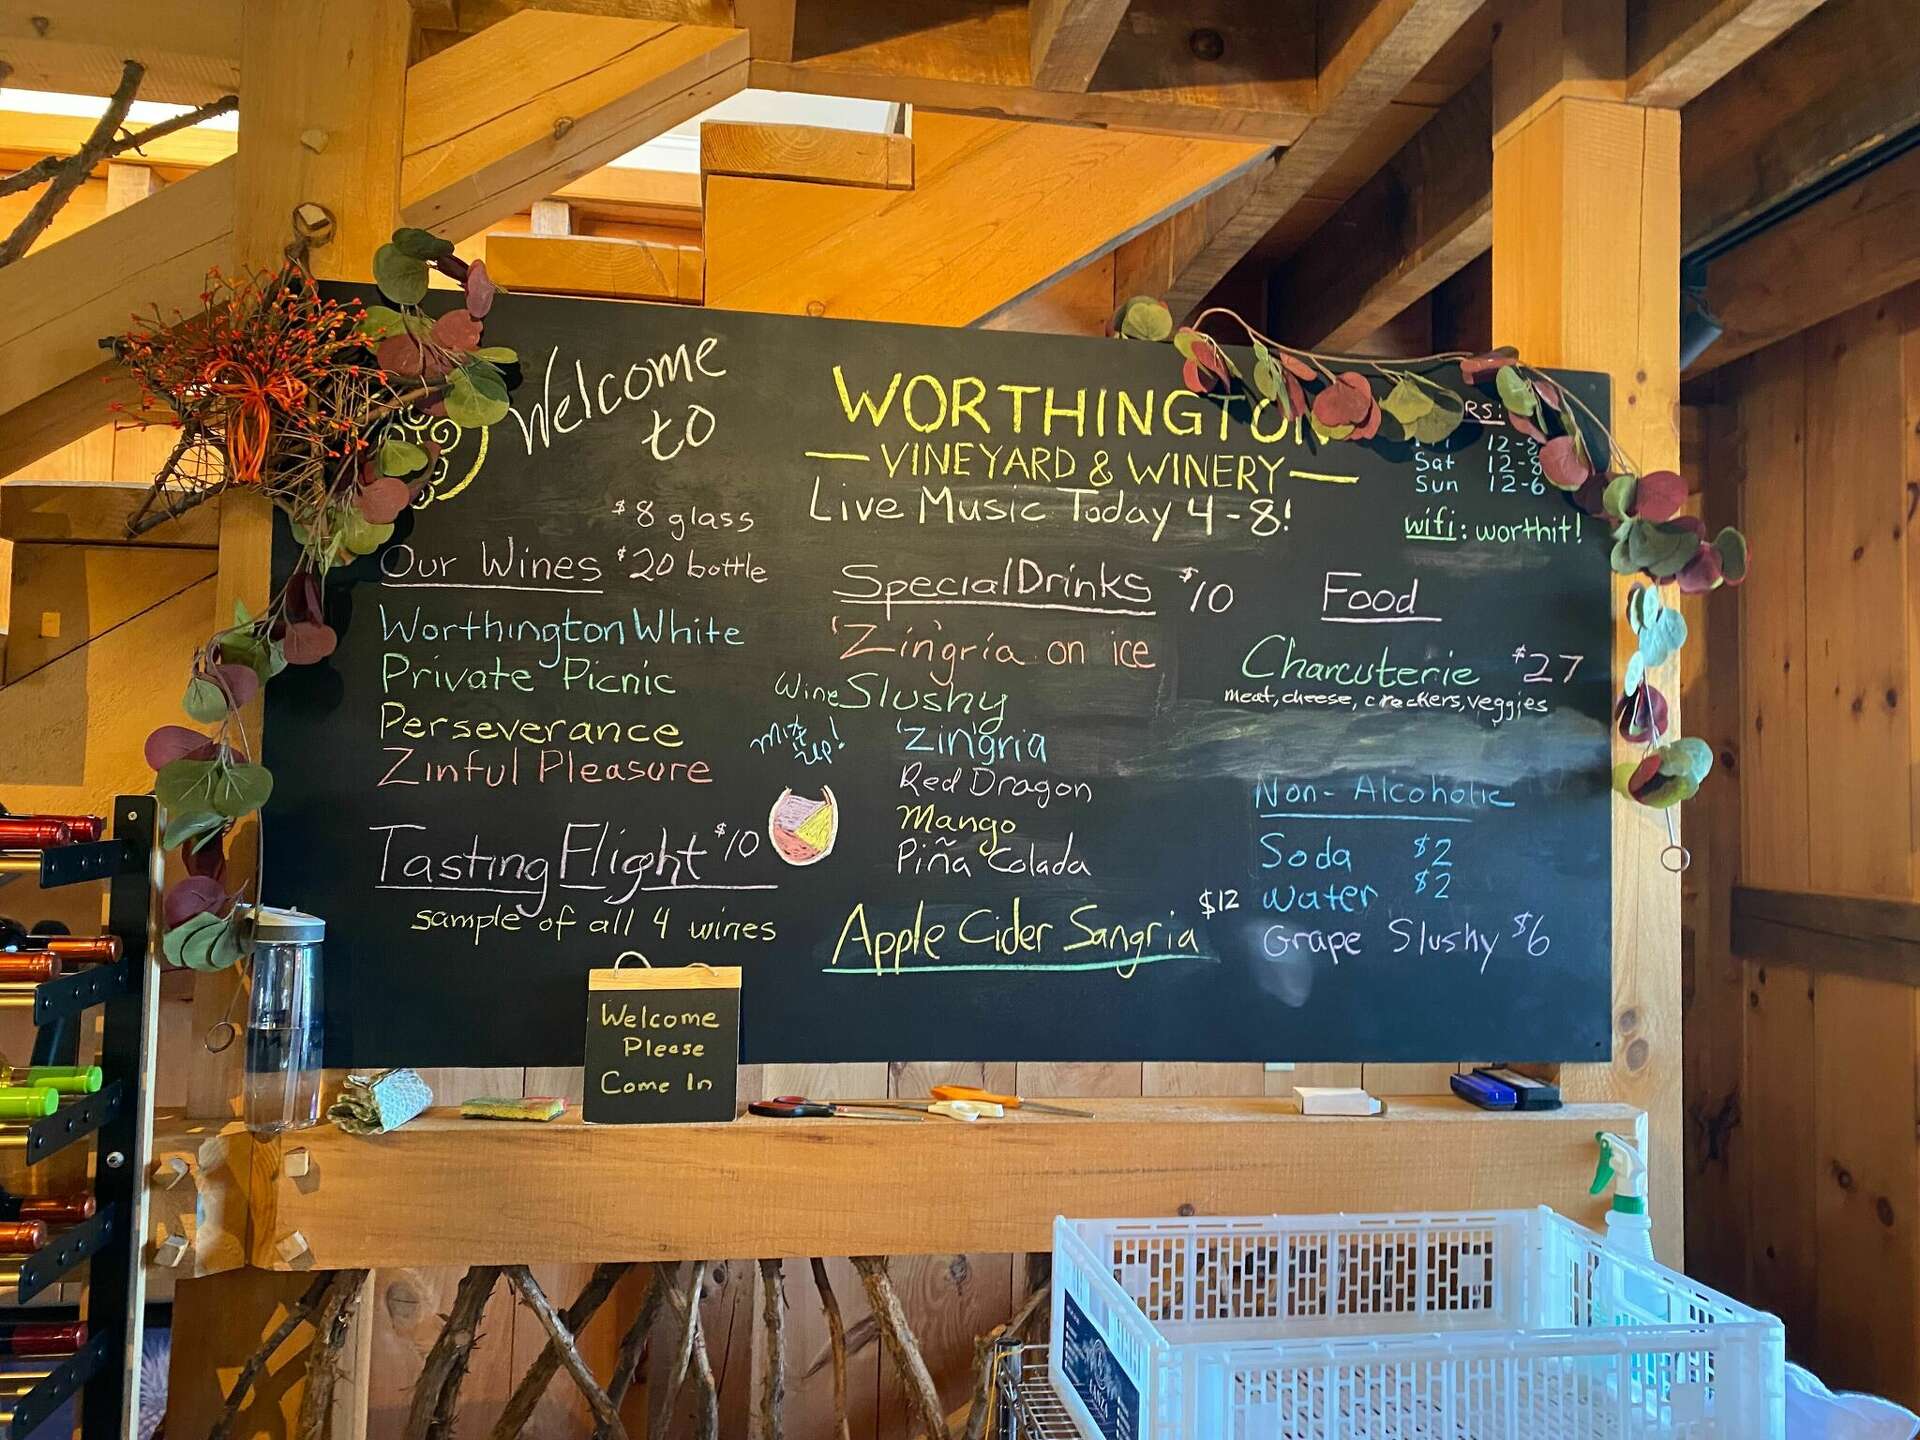 Welcome
to
WORTHINGTON
VINEYARD & WINERY
Live Music Today 4-8!
12-8
Sat 12-8
Sun 12-6
wifi: worthit!
$8 glass
Our Wines $20 bottle
Worthington White
Private Picnic
Perseverance
Zinful Pleasure
Tasting Flight $10
sample of all 4 wines
Special Drinks $10
'Zin'gria on ice
Wine Slushy
mix it up!
'Zin'gria
Red Dragon
Mango
Piña Colada
Apple Cider Sangria $12
Food
Charcuterie $27
meat, cheese, crackers, veggies
Non-Alcoholic
Soda $2
Water $2
Grape Slushy $6
Welcome
Please
Come In